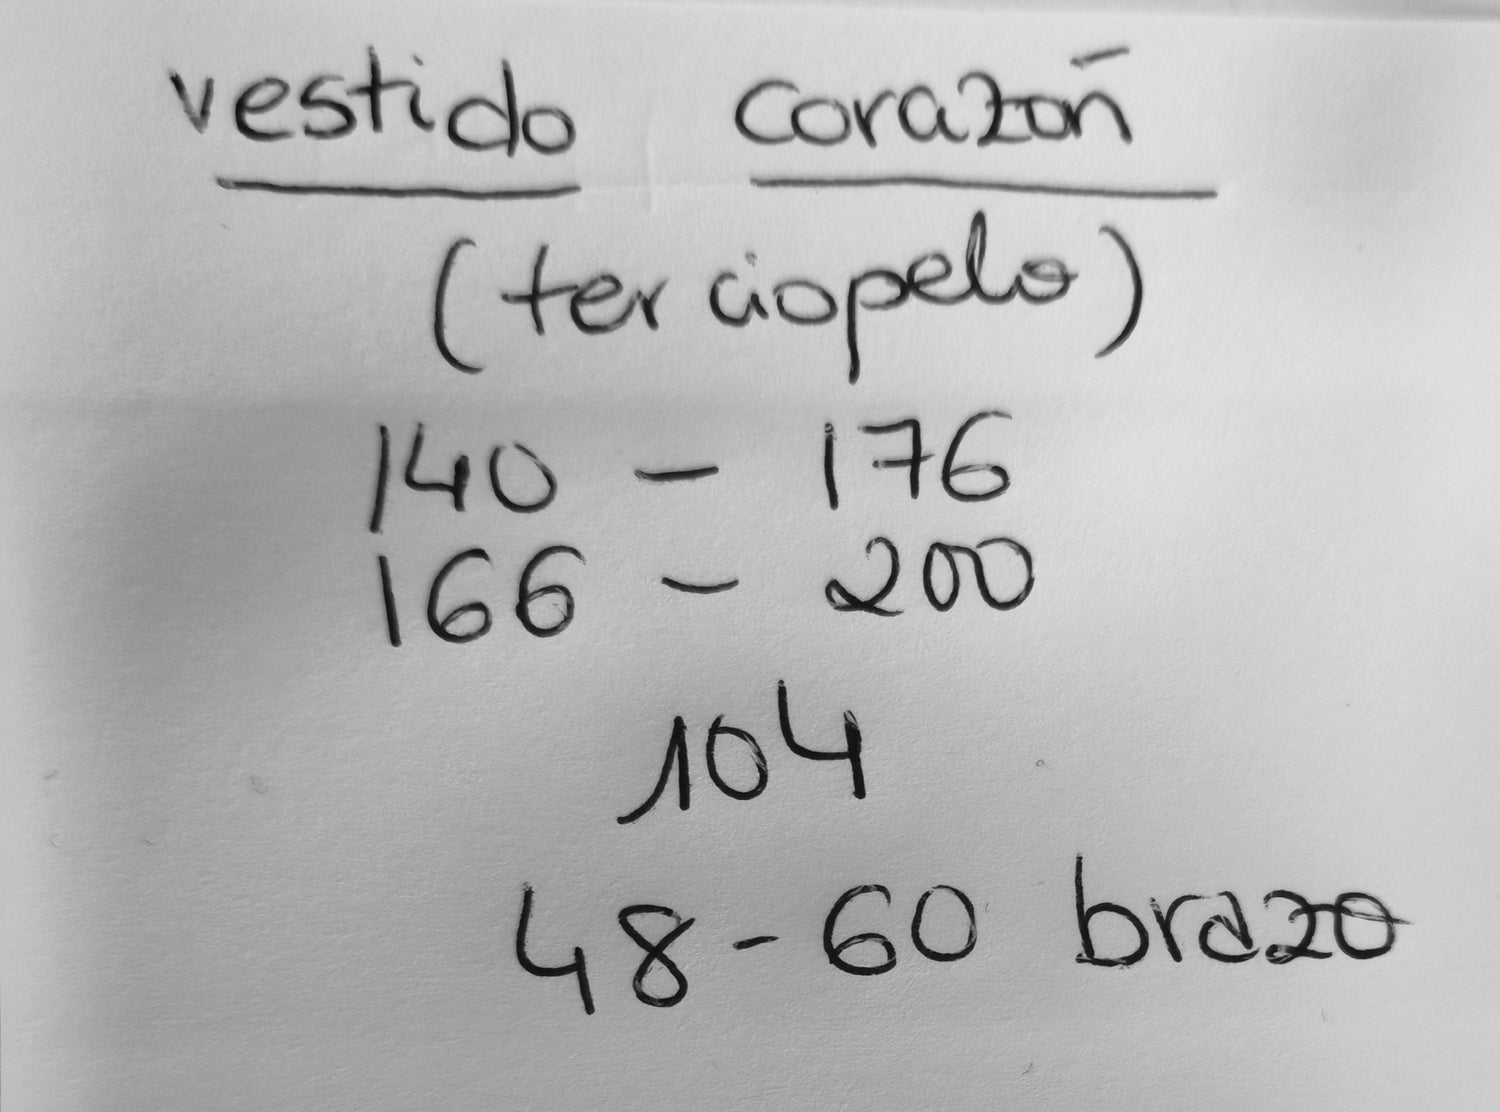 vestido corazón
(terciopelo)
140 - 176
166 - 200
104
48 - 60 brazo